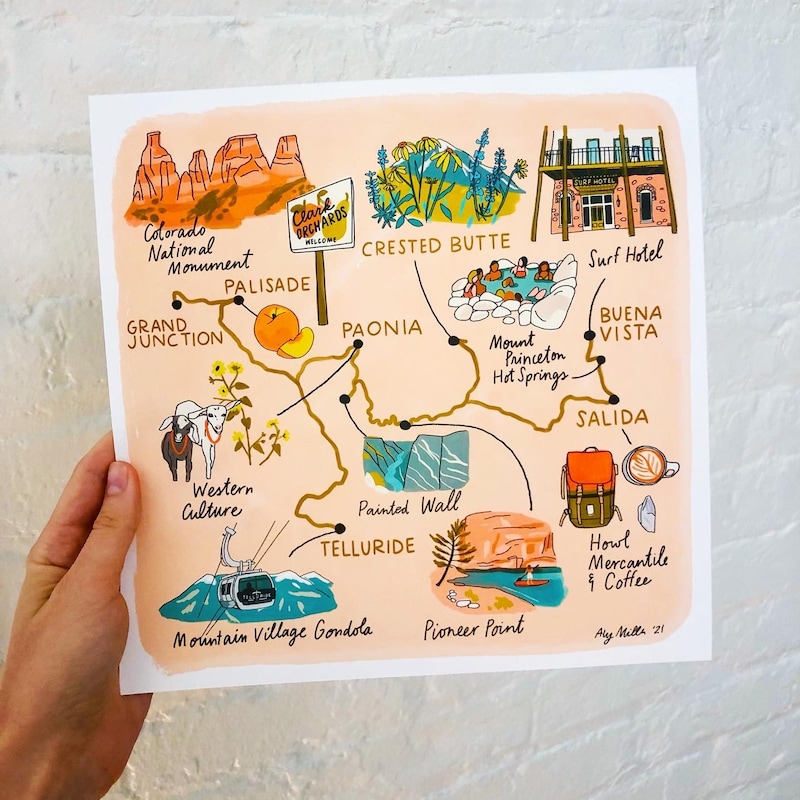 Colorado
National
Monument
Clark
ORCHARDS
WELCOME
CRESTED BUTTE
SURF HOTEL
Surf Hotel
PALISADE
GRAND
JUNCTION
PAONIA
Mount
Princeton
Hot Springs
BUENA
VISTA
SALIDA
Western
Culture
Painted Wall
TELLURIDE
Howl
Mercantile
& Coffee
TELLURIDE
Mountain Village Gondola
Pioneer Point
Aly Mills '21